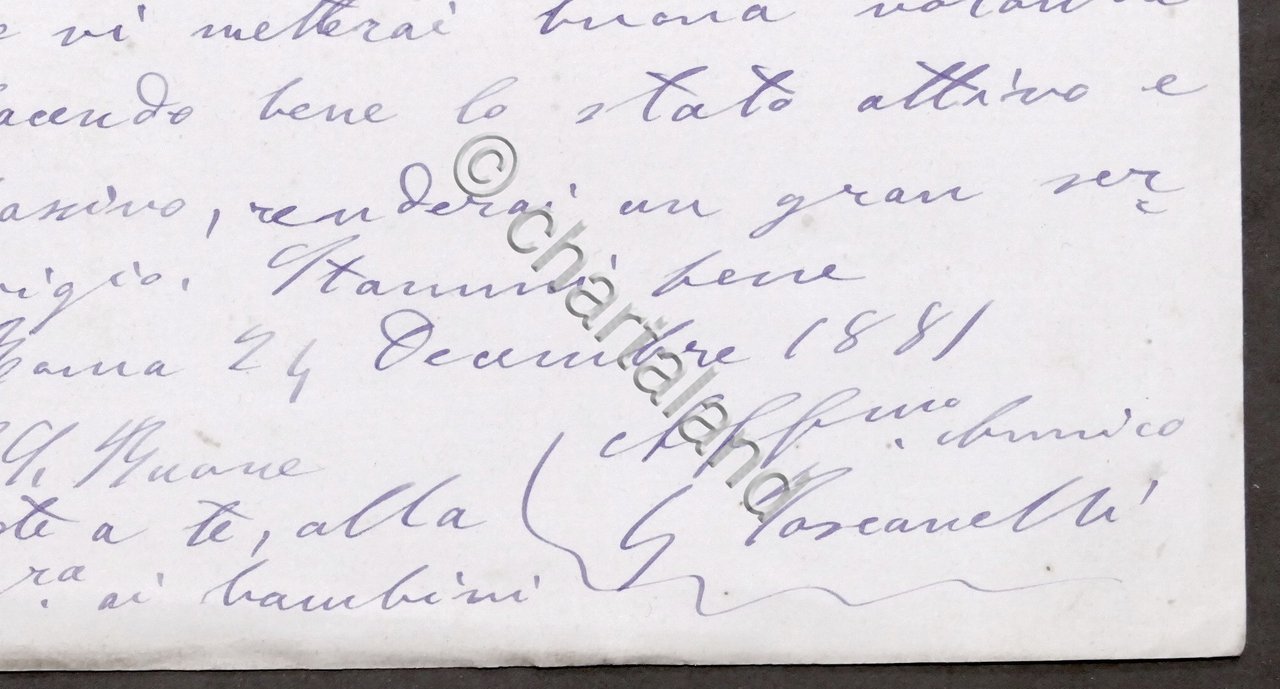 e vi metterai buona volontà
facendo bene lo stato attivo e
passivo, renderai un gran ser-
vigio. Stammi bene
Roma 24 Decembre 1881
Buone
ste a te, alla
ra ai bambini
Affmo Amico
G Toscanelli
© chartaland